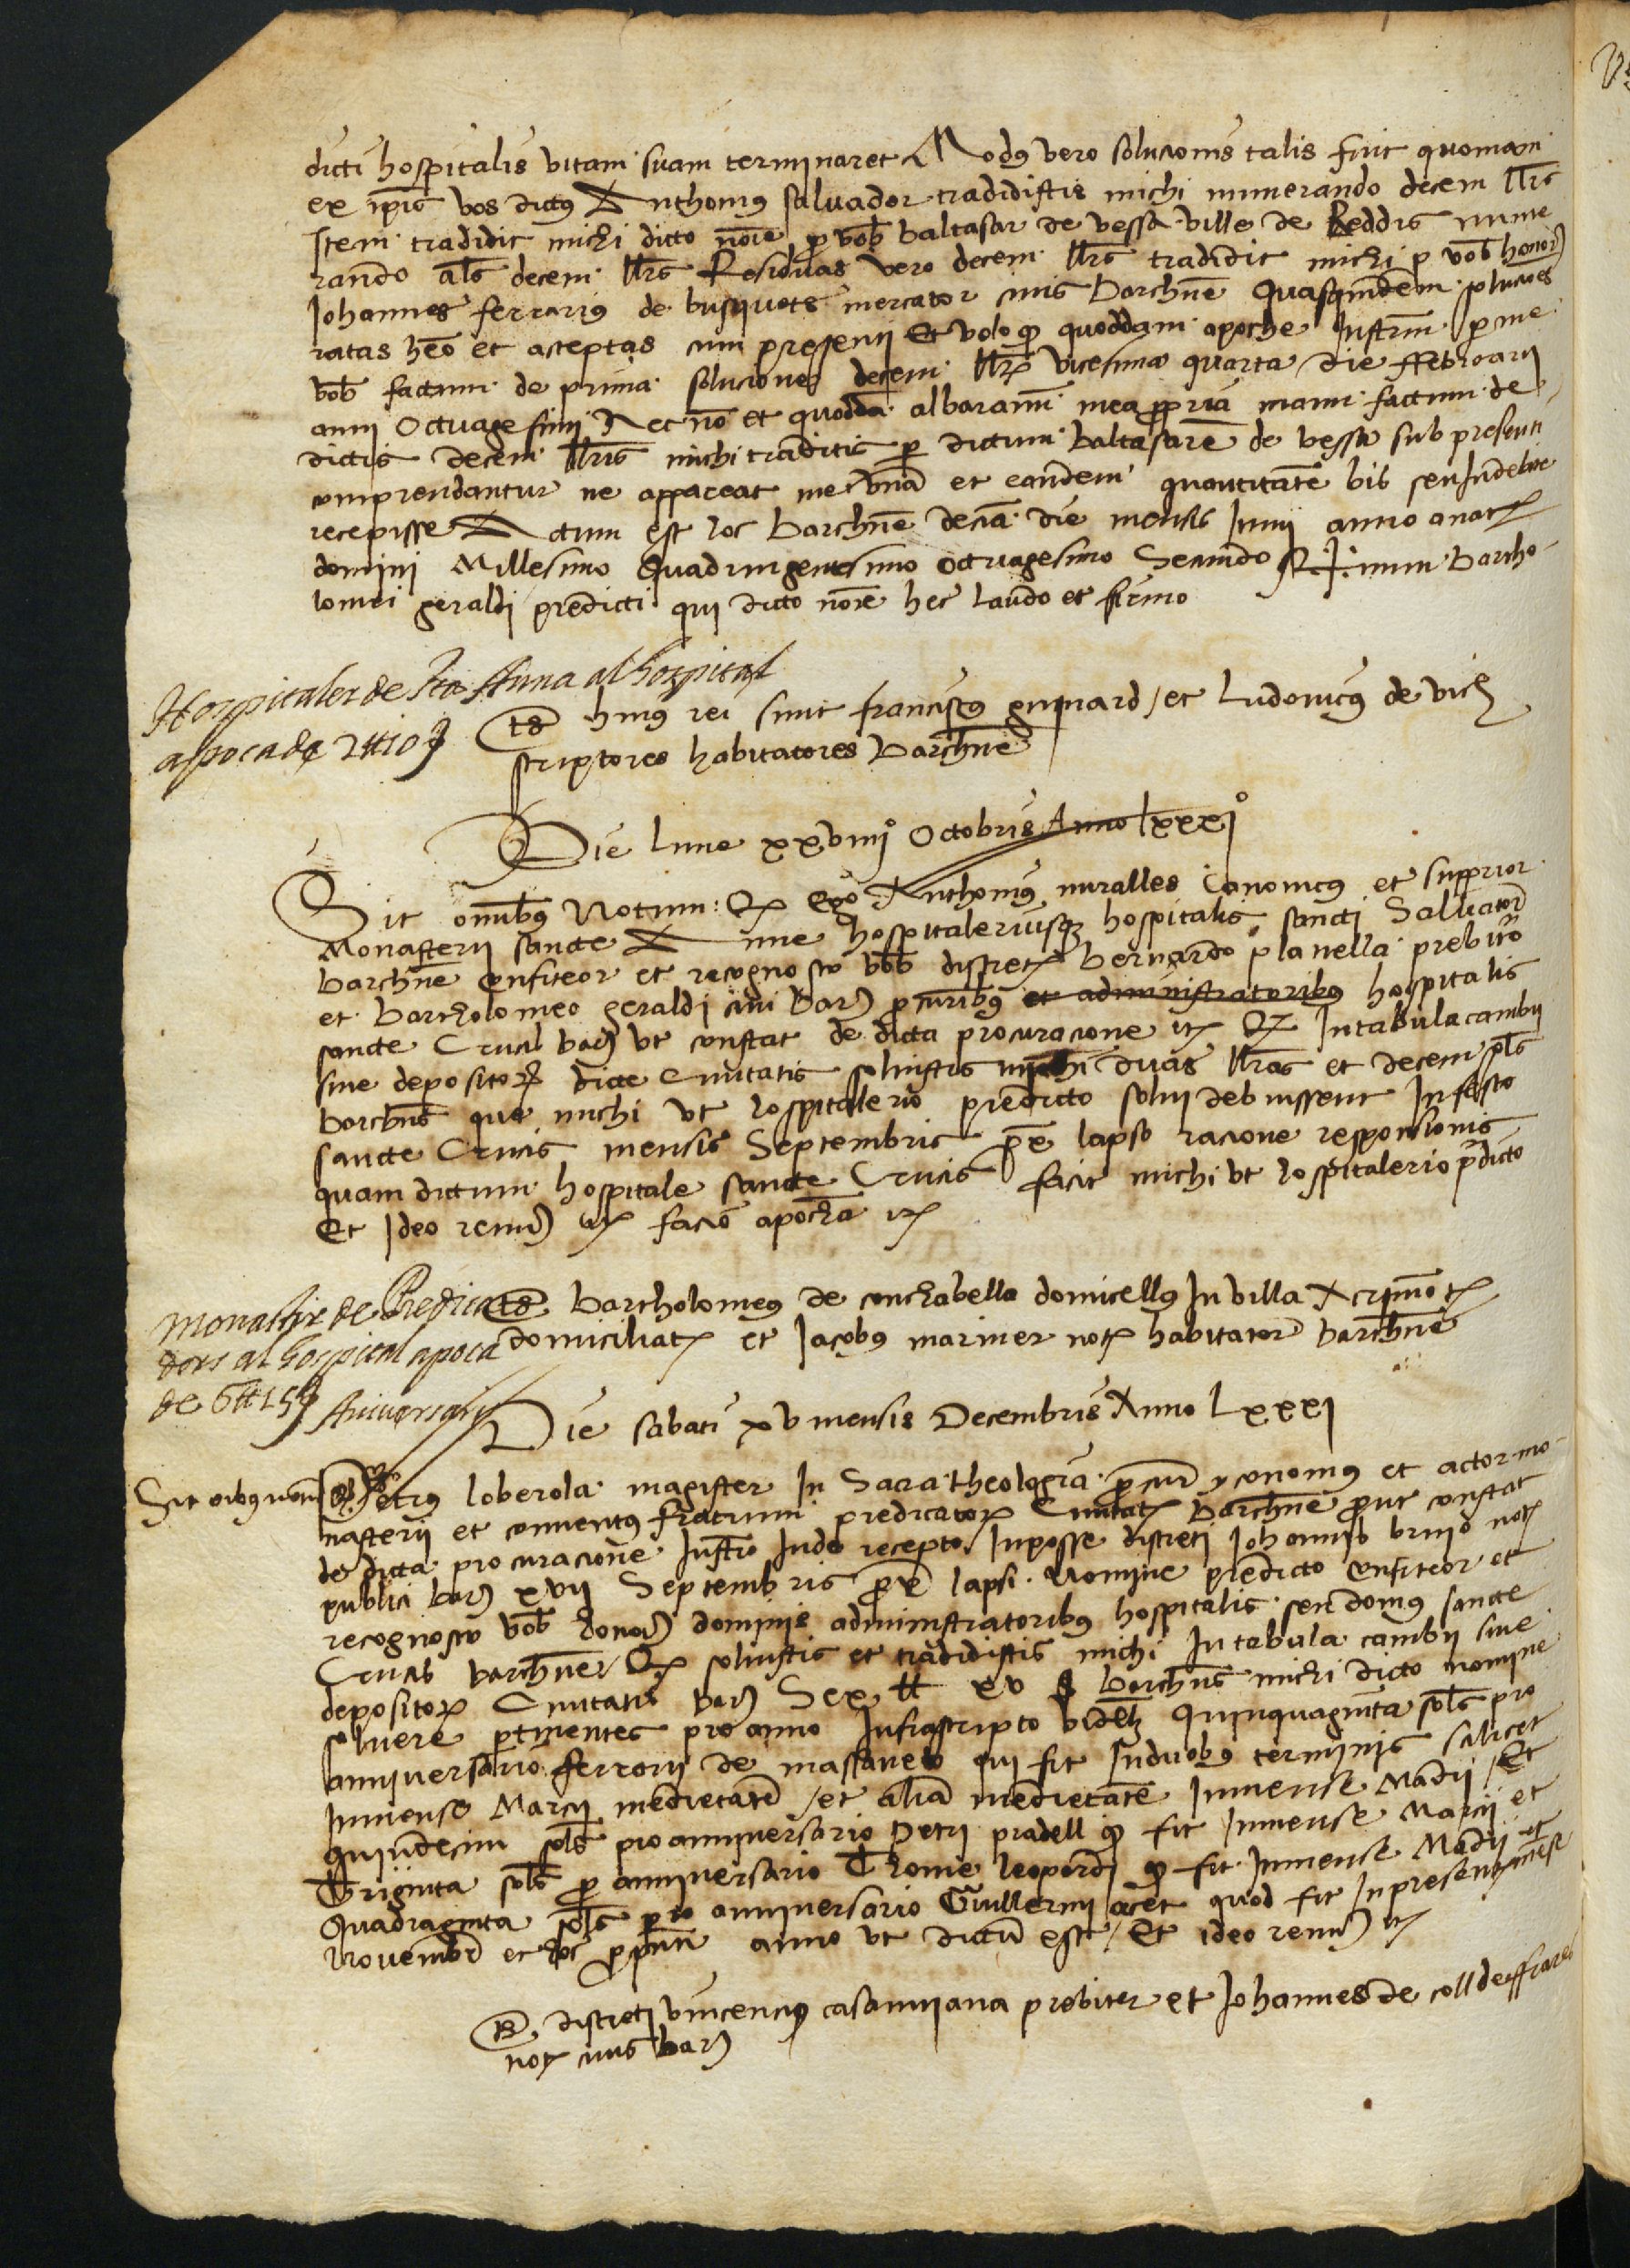 dicti hospitalis vitam suam terminaret Modus vero solucionis talis fuit quoniam
ex ipis vos dictus Anthonius Salvador tradidistis michi numerando decem llrs
Item tradidit michi dicto noie p vob Baltasar de vessa ville de Reddis nume
rando als decem llrs Residuas vero decem llrs tradidit michi p vob honor
Johannes ferrarius de busquets mercator civis Barchne Quasquidem soluciones
ratas heo et acceptas cum presenti Et volo qd quoddam apoche Instrm p me
vob factum de prima solucione decem llrs vicesima quarta die ffebroarii
anni Octuagesimi Nec no et quodda albaranum mea ppria manu factum de
dictis decem llris michi traditis p dictum Baltasare de vessa sub presenti
comprendantur ne appareat me vna et eandem quantitate bis seu Indebite
recepisse Actum est hoc Barchne decia die mensis Junii anno a nat
domini Millesimo Quadringentesimo octuagesimo Secundo Sig+num Bartho
lomei geraldi predicti qui dicto noie hec laudo et firmo
Hospitaler de sta Anna al hospital
apoca de 2 ll 10 s
ts huius rei sunt franciscus guinard / et Ludovicus de vich
scriptores habitatores Barchne
Die lune xxviiii° Octobris Anno lxxxi°
Sit omnibus Notum: Q ego Anthonius miralles Canonicus et supprior
Monasterii sancte Anne hospitaleriusq hospitalis sancti Salvator
Barchne confiteor et recognosco vob discret Bernardo planella prebitro
et Bartholomeo geraldi civi Bar pcuribus et administratoribus hospitalis
sancte Crucis Bar vt constat de dicta procuracione etc Q In tabula cambii
sive depositor dicte Civitatis solvistis michi duas llras et decem sols
Barchns que michi vt hospitalerio predicto solvi debuissent In festo
sancte Crucis mensis Septembris pxe lapso racione responsionis
quam dictum hospitale sancte Crucis facit michi vt hospitalerio pdicto
Et Ideo renun etc facio apocha etc
Monastir de Predica
dors al hospital apoca
de 6 ll 15 s Aniversari
ts Bartholomeus de conchabella domicellus In villa Acrimot
domiciliat et Jacobus mariner not habitator Barchne
Die sabati xv mensis Decembris Anno Lxxxi
Sit oibus notum Q ego Petrus loberola magister In Sacra theologia pcur yconomus et actor mo
nasterii et conventus fratrum predicator Civitat Barchne prout constat
de dicta procuracione Instro Inde recepto In posse discreti Johannis brujo not
publici Bar xvii Septembris pxe lapsi Nomine predicto confiteor et
recognosco vob honor dominis administratoribus hospitalis seu domus sancte
Crucis Barchne Q solvistis et tradidistis michi In tabula cambii sive
depositor Civitatis Bar Sex ll xv s Barchns michi dicto nomine
solvere ptinentes pro anno Infrascripto videlz Quinquaginta sols pro
anniversario ferrarii de massaneto qui fit In duobus terminis scilicet
In mense Marcii medietate / et alia medietate In mense Madii / Et
quindecim sols pro anniversario Petri pradell qd fit In mense Marcii et
Triginta sols p anniversario Thome leopardi qd fit In mense Madii et
Quadraginta sols pro anniversario Guillermi acet quod fit In presenti mese
Novembr et hoc p pnti anno vt dictu est / Et ideo renun etc
ts discreti vincencius casamijana prebiter et Johannes de coll de ffrares
not civis Bar